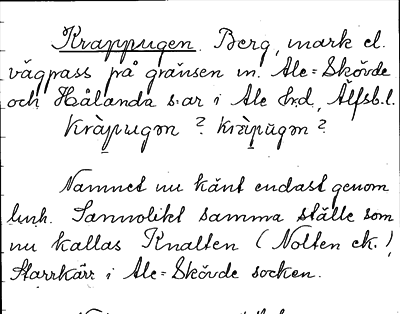 Krappugen. Berg, mark el.
vägpass på gränsen m. Ale=Skövde
och Hålanda s:ar i Ale hrd, Älfsb.l.
Kràpugǝn? kràpūgǝn?
Namnet nu känt endast genom
Sannolikt samma ställe som
nu kallas Knalten (Nolten ek.)
Starrkärr i Ale=Skövde socken.